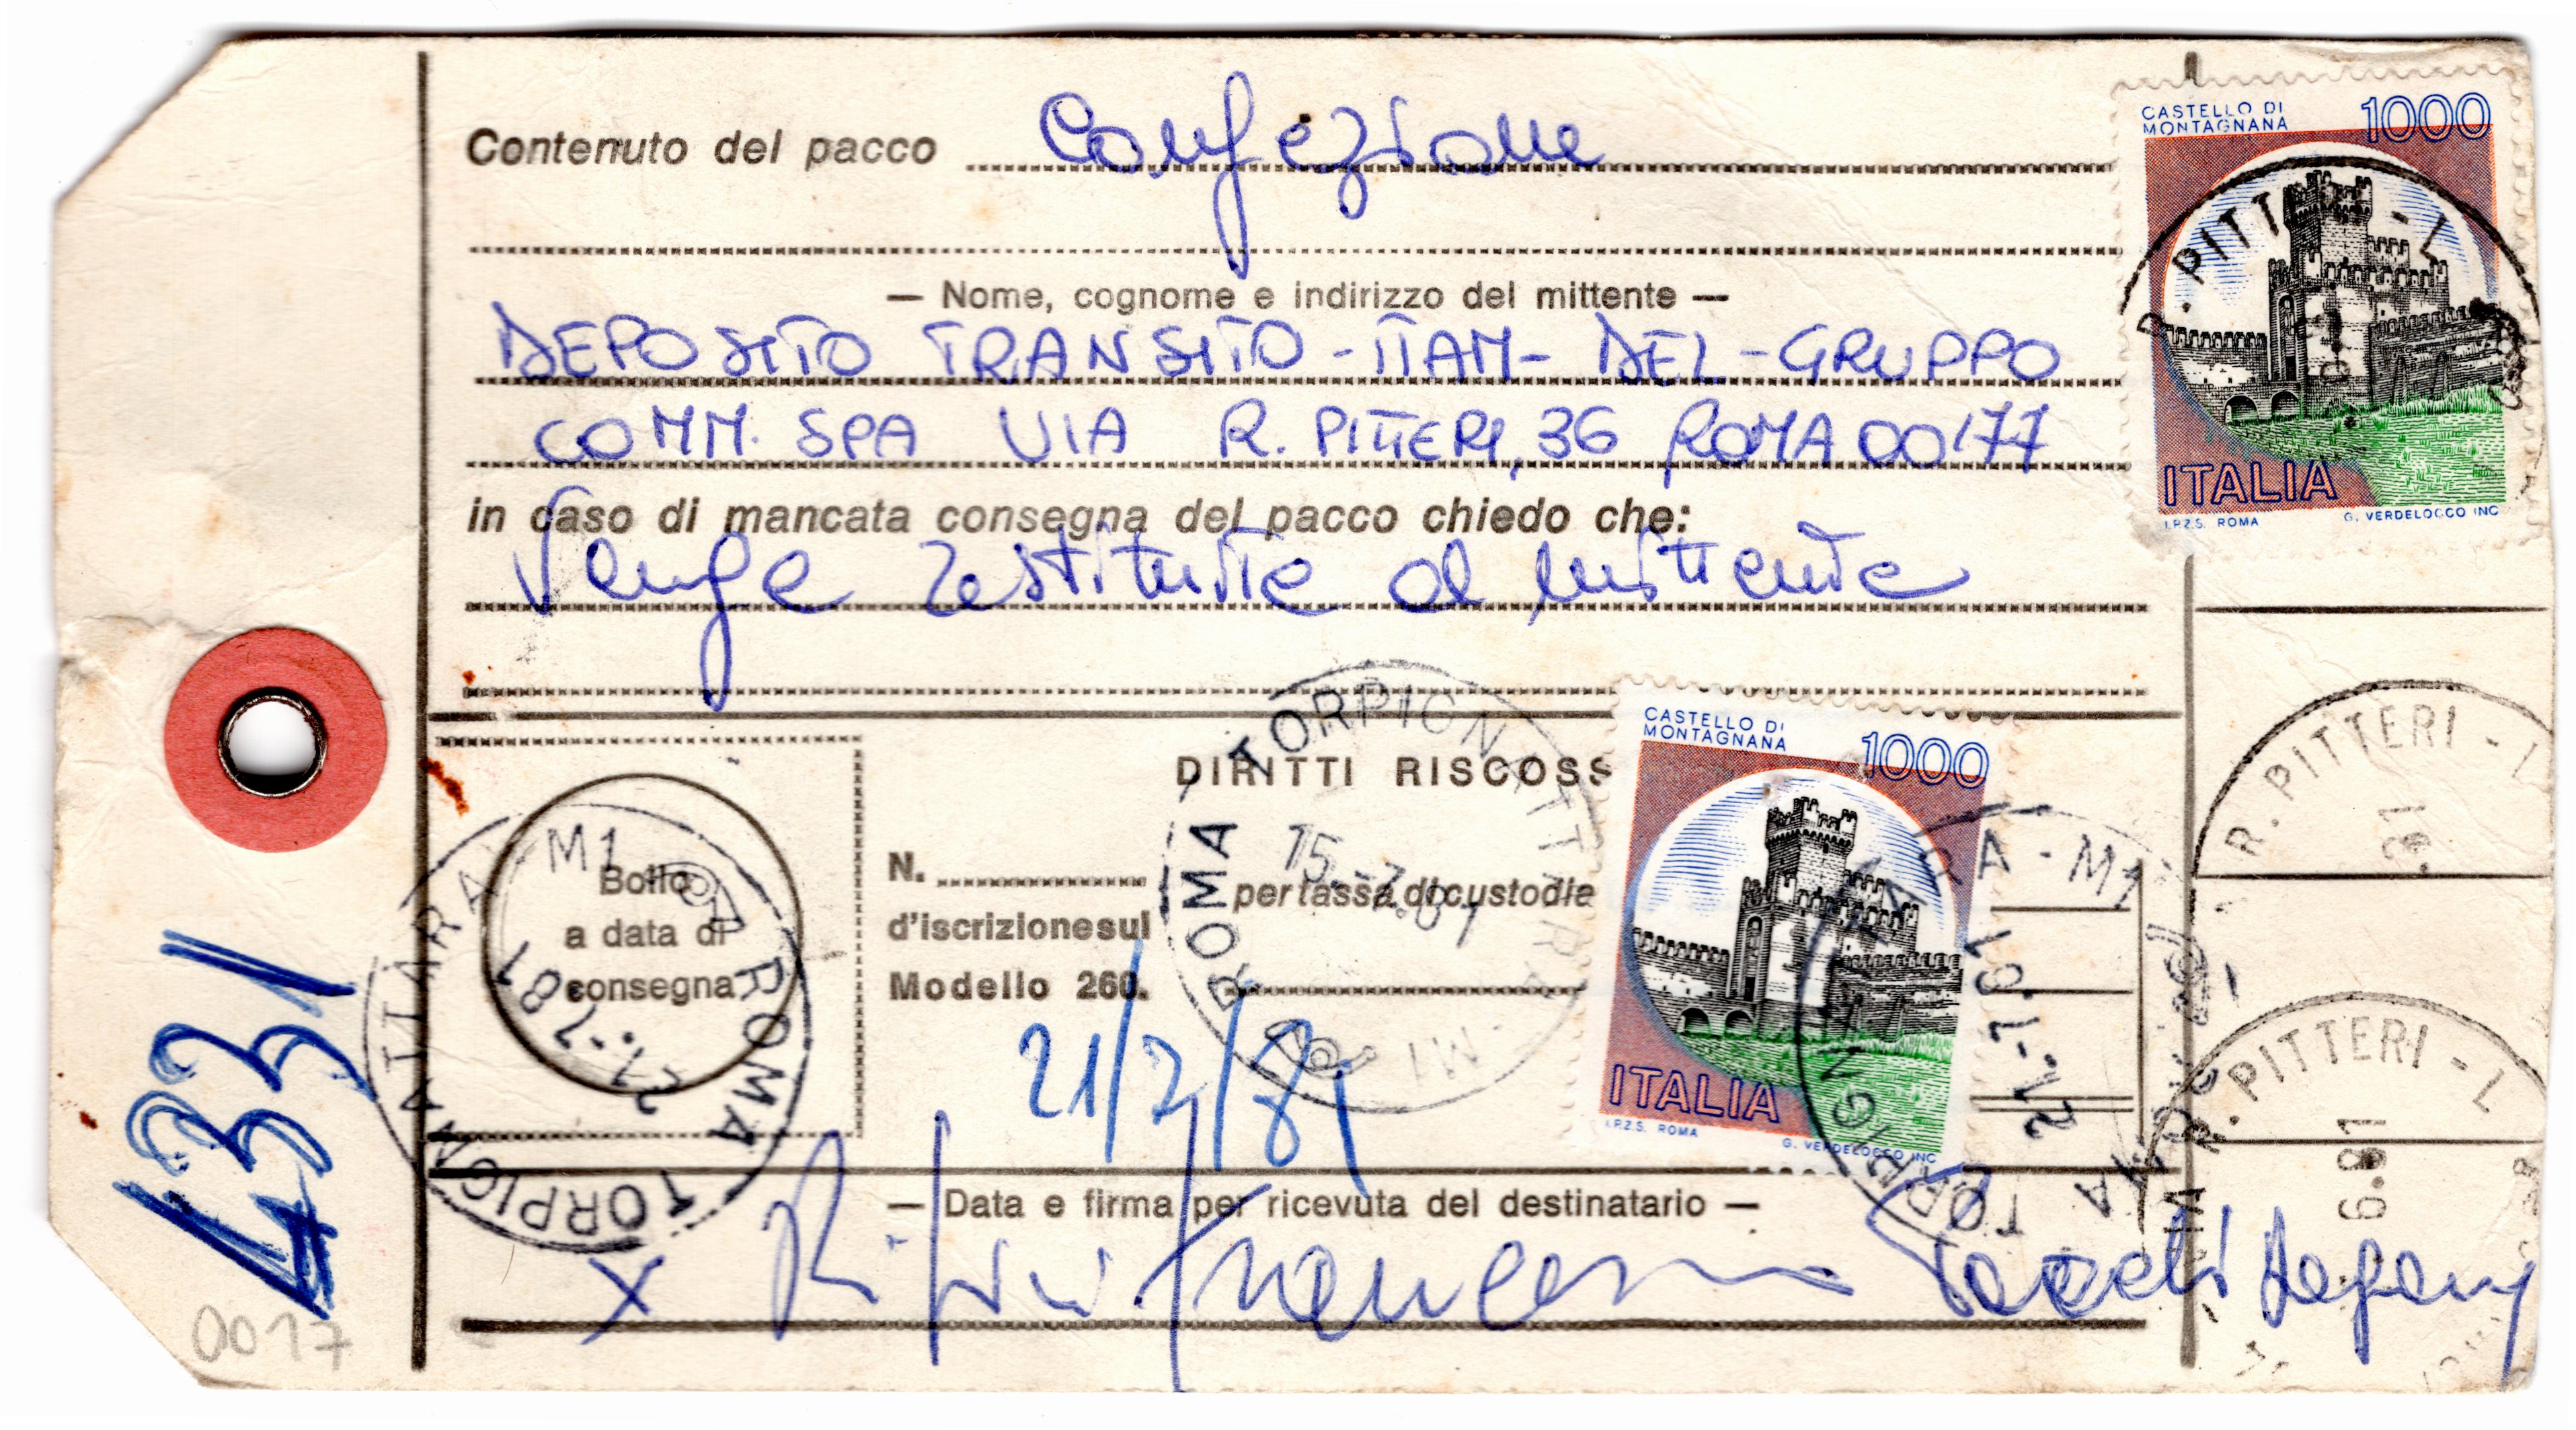 Contenuto del pacco Confezione
CASTELLO DI
MONTAGNANA 1000
R. PITT - L
— Nome, cognome e indirizzo del mittente —
DEPOSITO TRANSITO - ITAM - DEL - GRUPPO
COMM. SPA VIA R. PITTERI, 36 ROMA 00177
ITALIA
I.P.Z.S. ROMA G. VERDELOCCO INC
in caso di mancata consegna del pacco chiedo che:
Venga restituite al mittente
CASTELLO DI
MONTAGNANA 1000
DIRITTI RISCOSS
Bollo
a data di
consegna
N.
d'iscrizione sul
Modello 260.
per tassa di custodia
ROMA TORPIGNATTARA - M1
15.-7.81
ITALIA
I.P.Z.S. ROMA G. VERDELOCCO INC
ROMA TORPIGNATTARA M1
21.-7.81
ROMA TORPIGNATTARA - M1
21.-7.81
R. PITTERI - L
.81
R. PITTERI - L
6.81
21/7/81
— Data e firma per ricevuta del destinatario —
X Francesca
4331
0017